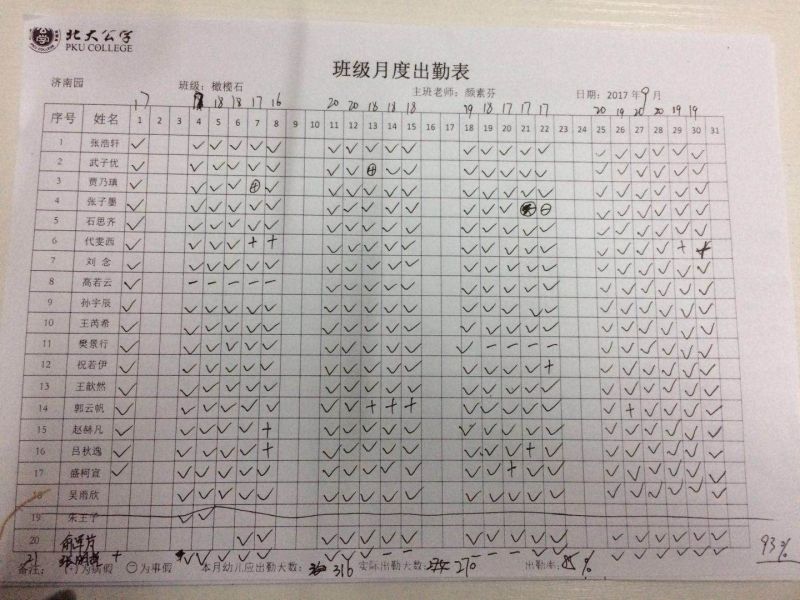 北大公学
PKU COLLEGE
班级月度出勤表
济南园 班级：橄榄石 主班老师：颜素芬 日期：2017 年 9 月
17 18 18 17 16 20 20 18 18 18 19 18 17 17 17 20 19 20 20 19 19
序号 姓名 1 2 3 4 5 6 7 8 9 10 11 12 13 14 15 16 17 18 19 20 21 22 23 24 25 26 27 28 29 30 31
1 张浩轩 ✓ ✓ ✓ ✓ ✓ ✓ ✓ ✓ ✓ ✓ ✓ ✓ ✓ ✓ ✓ ✓ ✓ ✓ ✓ ✓ ✓ ✓
2 武子优 ✓ ✓ ✓ ✓ ✓ ✓ ✓ ✓ ⊕ ✓ ✓ ✓ ✓ ✓ ✓ ✓ ✓ ✓ ✓ ✓ ✓ ✓
3 贾乃瑱 ✓ ✓ ✓ ✓ ⊕ ✓ ✓ ✓ ✓ ✓ ✓ ✓ ✓ ✓ ✓ ✓ ✓ ✓ ✓ ✓ ✓ ✓
4 张子墨 ✓ ✓ ✓ ✓ ✓ ✓ ✓ ✓ ✓ ✓ ✓ ✓ ✓ ✓ ⊖ ✓ ✓ ✓ ✓ ✓ ✓
5 石思齐 ✓ ✓ ✓ ✓ ✓ ✓ ✓ ✓ ✓ ✓ ✓ ✓ ✓ ✓ ✓ ✓ ✓ ✓ ✓ ✓ ✓ ✓
6 代斐西 ✓ ✓ ✓ ✓ + + ✓ ✓ ✓ ✓ ✓ ✓ ✓ ✓ ✓ ✓ ✓ ✓ ✓ ✓ + +
7 刘念 ✓ ✓ ✓ ✓ ✓ ✓ ✓ ✓ ✓ ✓ ✓ ✓ ✓ ✓ ✓ ✓ ✓ ✓ ✓ ✓ ✓ ✓
8 高若云 ✓ － － － － － ✓ ✓ ✓ ✓ ✓ ✓ ✓ ✓ ✓ ✓ ✓ ✓ ✓ ✓ ✓ ✓
9 孙宇辰 ✓ ✓ ✓ ✓ ✓ ✓ ✓ ✓ ✓ ✓ ✓ ✓ ✓ ✓ ✓ ✓ ✓ ✓ ✓ ✓ ✓ ✓
10 王芮希 ✓ ✓ ✓ ✓ ✓ ✓ ✓ ✓ ✓ ✓ ✓ ✓ ✓ ✓ ✓ ✓ ✓ ✓ ✓ ✓ ✓ ✓
11 樊景行 ✓ ✓ ✓ ✓ ✓ ✓ ✓ ✓ ✓ ✓ ✓ ✓ － － － － ✓ ✓ ✓ ✓ ✓ ✓
12 祝若伊 ✓ ✓ ✓ ✓ ✓ ✓ ✓ ✓ ✓ ✓ ✓ ✓ ✓ ✓ ✓ + ✓ ✓ ✓ ✓ ✓ ✓
13 王歆然 ✓ ✓ ✓ ✓ ✓ ✓ ✓ ✓ ✓ ✓ ✓ ✓ ✓ ✓ ✓ ✓ ✓ ✓ ✓ ✓ ✓ ✓
14 郭云帆 ✓ ✓ ✓ ✓ ✓ ✓ ✓ ✓ + + + ✓ ✓ ✓ ✓ ✓ ✓ + ✓ ✓ ✓ ✓
15 赵赫凡 ✓ ✓ ✓ ✓ ✓ + ✓ ✓ ✓ ✓ ✓ ✓ ✓ ✓ ✓ ✓ ✓ ✓ ✓ ✓ ✓ ✓
16 吕秋逸 ✓ ✓ ✓ ✓ ✓ + ✓ ✓ ✓ ✓ ✓ ✓ ✓ ✓ + ✓ ✓ ✓ ✓ ✓ ✓ ✓
17 盛柯宜 ✓ ✓ ✓ ✓ ✓ ✓ ✓ ✓ ✓ ✓ ✓ ✓ ✓ + ✓ ✓ ✓ ✓ ✓ ✓ ✓ ✓
18 吴雨欣 ✓ ✓ ✓ ✓ ✓ ✓ ✓ ✓ ✓ ✓ ✓ ✓ ✓ ✓ ✓ ✓ ✓ ✓ ✓ ✓ ✓
19 朱王子 ✓ ✓
20 ✓ ✓ ✓ ✓ ✓ ✓ ✓ ✓ ✓ ✓ ✓ ✓ ✓ ✓ ✓ ✓ ✓ ✓
21
93%
备注： 为病假 ⊖为事假 本月幼儿应出勤天数： 316 实际出勤天数： 270 出勤率：85%